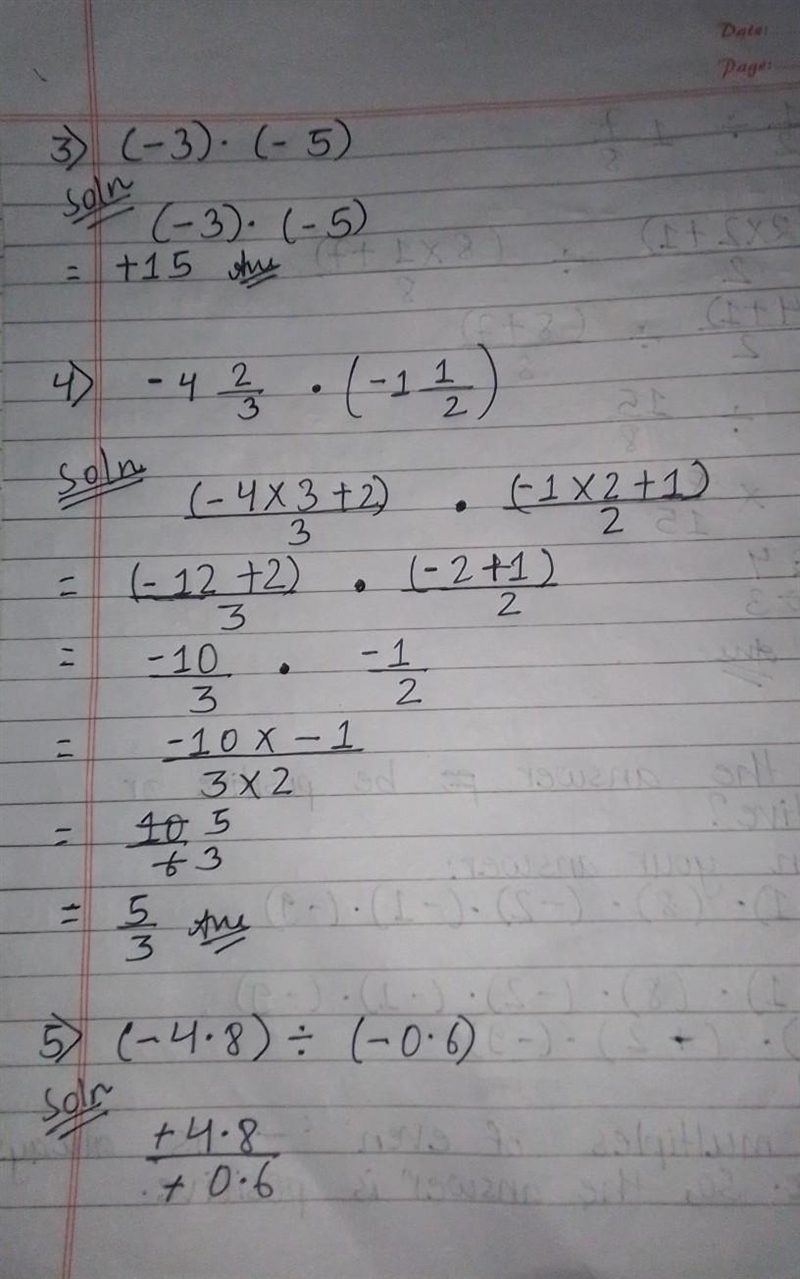 Date:
Page:
3) (-3)·(-5)
Soln
(-3)·(-5)
= +15 Ans
4) -4 2/3 · (-1 1/2)
Soln
(-4×3+2)/3 · (-1×2+1)/2
= (-12+2)/3 · (-2+1)/2
= -10/3 · -1/2
= -10×-1/3×2
= 10 5/6 3
= 5/3 Ans
5) (-4·8) ÷ (-0·6)
Soln
+4·8/+0·6